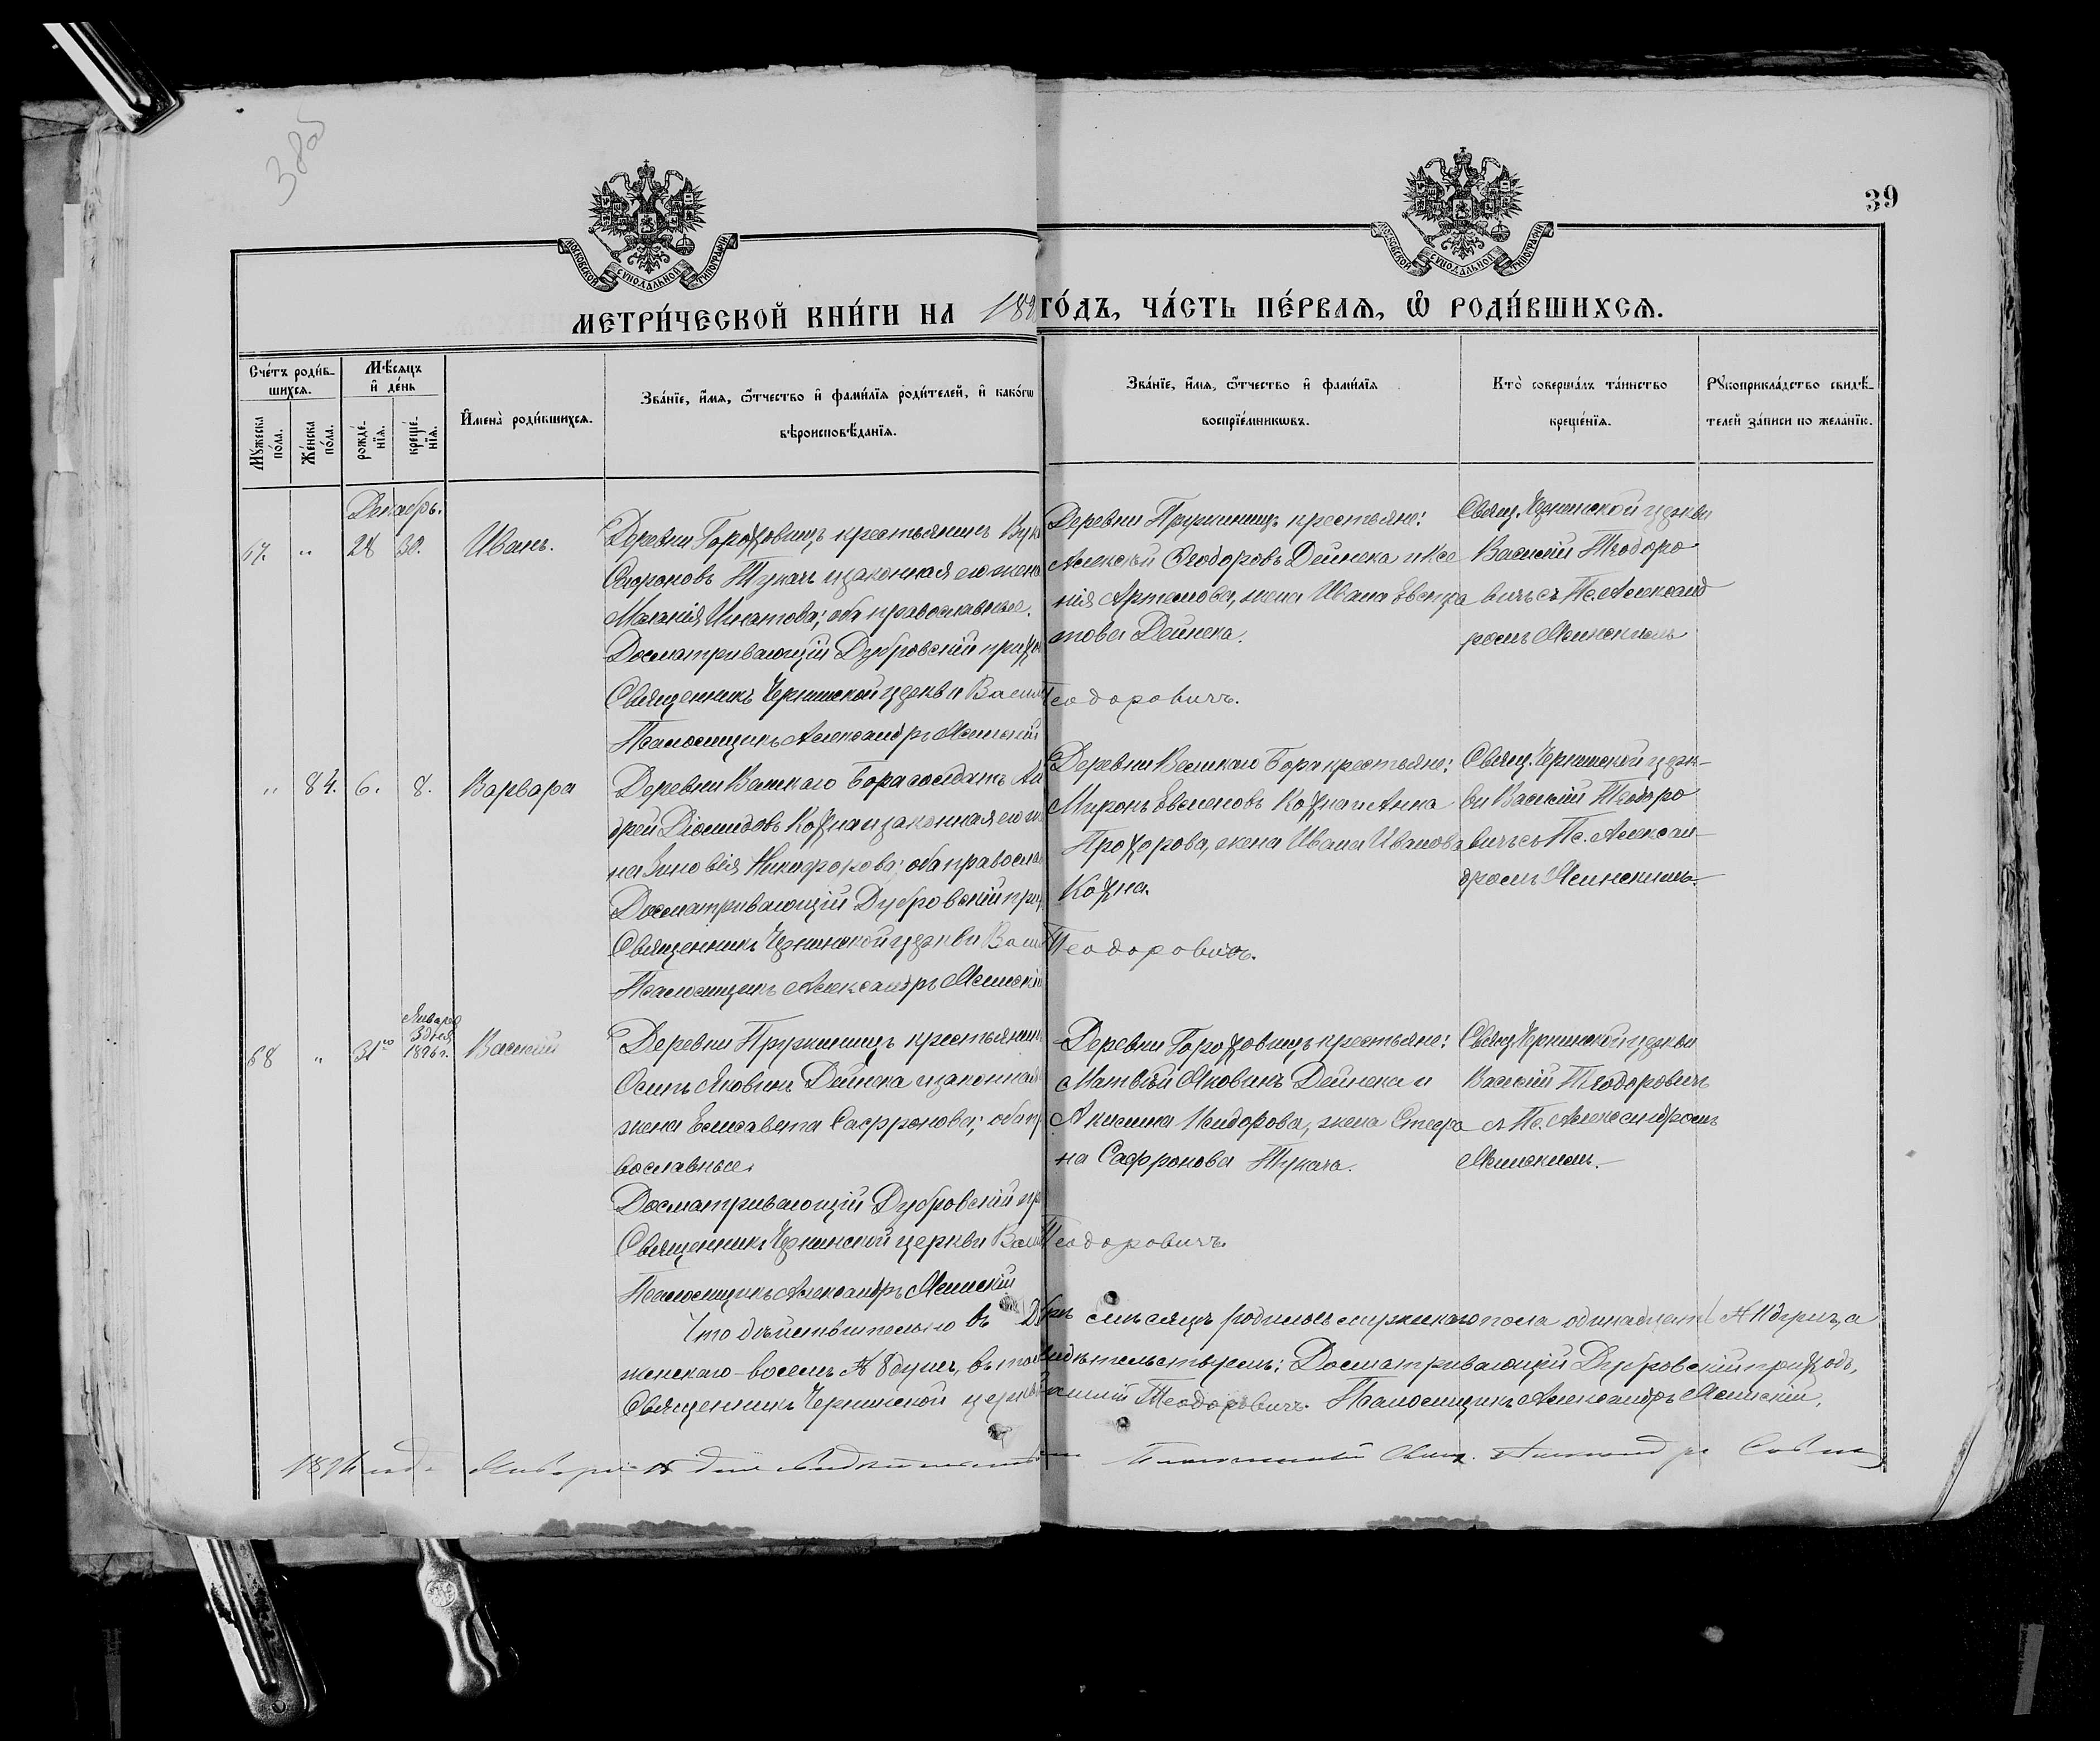 38об
39
МОСКОВСКОЙ СѴНОДАЛЬНОЙ ТИПОГРАФІИ
МОСКОВСКОЙ СѴНОДАЛЬНОЙ ТИПОГРАФІИ
МЕТРИ́ЧЕСКОЙ КНИ́ГИ НА 189
ГО́ДЪ, ЧА́СТЬ ПЕ́РВАѦ, Ѡ҆ РОДИ́ВШИХСѦ.
Сче́тъ роди́в-
шихсѧ.
Мꙋ́жеска по́ла.
Же́нска по́ла.
Мѣ́сѧцъ и҆ де́нь
рожде́-нїѧ.
креще́-нїѧ.
И҆мена̀ роди́вшихсѧ.
Зва́нїе, и҆́мѧ, ѻ҆́тчество и҆ фами́лїѧ роди́телей, и҆ како́гѡ
вѣроисповѣ́данїѧ.
Зва́нїе, и҆́мѧ, ѻ҆́тчество и҆ фами́лїѧ
воспрїе́мникѡвъ.
Кто̀ соверша́лъ та́инство
креще́нїѧ.
Рꙋкоприкла́дство свидѣ́-
телей за́писи по жела́нїю.
Декабрь.
67. " 28 30. Иванъ.
Деревни Гороховищъ крестьянинъ Вук
Софроновъ Тукачъ и законная его жена
Маланія Игнатова; оба православные.
Досматривающій Дубровскій прихо
Священникъ Чернинской церкви Васил
Псаломщикъ Александръ Ясинскій
Деревни Пружинищъ крестьяне:
Алексѣй Ѳеодоровъ Дейнека и Ксе
нія Артемова, жена Ивана Евста
това Дейнека.
Теодоровичъ.
Свящ. Чернинской церкви
Василій Теодоро
вичъ съ Пс. Александ
ромъ Ясинскимъ
" 84. 6. 8. Варвара
Деревни Великаго Бора солдатъ Ан
дрей Діомидовъ Кохна и законная его же
на Зиновія Никифорова; оба правосла
Досматривающій Дубровскій прих
Священникъ Чернинской церкви Васи
Псаломщикъ Александръ Ясинскій
Деревни Великаго Бора крестьяне:
Миронъ Евсеновъ Кохна и Анна
Прохорова, жена Ивана Иванова
Кохна.
Теодоровичъ.
Свящ. Чернинской церк-
ви Василій Теодоро
вичъ съ Пс. Алексан-
дромъ Ясинскимъ.
68 " 31го Января 3 дня 1896 г. Василій
Деревни Пружинищъ крестьянин
Осипъ Яковинъ Дейнека и законная
жена Елисавета Сафронова; оба пр
вославные.
Досматривающій Дубровскій пр
Священникъ Чернинской церкви Васи
Псаломщикъ Александръ Ясинскій
Деревни Гороховищъ крестьяне:
Матвѣй Яковинъ Дейнека и
Акилина Исидорова, жена Стефа
на Сафронова Тукача.
Теодоровичъ.
Свящ. Чернинской церкви
Василій Теодоровичъ
съ Пс. Александромъ
Ясинскимъ.
Что дѣйствительно въ Дек брѣ мѣсяцѣ родилось мужескаго пола одинадцать № 11 душъ, а
женскаго - восемь № 8 душъ, въ томъ свидѣтельствуемъ: Досматривающій Дубровскій приходъ,
Священникъ Чернинской церкви Василій Теодоровичъ. Псаломщикъ Александръ Ясинскій.
1896 года Января дня